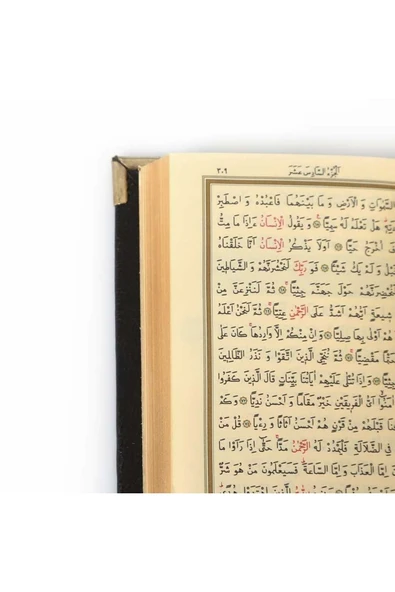 ٣٠٩ اَلْجُزْءُ السَّادِسَ عَشَرَ
السَّمٰوَاتِ وَ الْاَرْضِ وَ مَا بَيْنَهُمَا فَاعْبُدْهُ وَ اصْطَبِرْ
هَلْ تَعْلَمُ لَهُ سَمِيًّا وَ يَقُولُ الْاِنْسَانُ ءَاِذَا مَا مِتُّ
اُخْرَجُ حَيًّا اَوَلَا يَذْكُرُ الْاِنْسَانُ اَنَّا خَلَقْنَاهُ
وَ لَمْ يَكُ شَيْئًا فَوَرَبِّكَ لَنَحْشُرَنَّهُمْ وَ الشَّيَاطِينَ
لَنُحْضِرَنَّهُمْ حَوْلَ جَهَنَّمَ جِثِيًّا ثُمَّ لَنَنْزِعَنَّ مِنْ
شِيعَةٍ اَيُّهُمْ اَشَدُّ عَلَى الرَّحْمٰنِ عِتِيًّا ثُمَّ لَنَحْنُ اَعْلَمُ
هُمْ اَوْلٰى بِهَا صِلِيًّا وَ اِنْ مِنْكُمْ اِلَّا وَارِدُهَا كَانَ عَلٰى
مَقْضِيًّا ثُمَّ نُنَجِّي الَّذِينَ اتَّقَوْا وَ نَذَرُ الظَّالِمِينَ
وَ اِذَا تُتْلٰى عَلَيْهِمْ اٰيَاتُنَا بَيِّنَاتٍ قَالَ الَّذِينَ كَفَرُوا
اَيُّ الْفَرِيقَيْنِ خَيْرٌ مَقَامًا وَ اَحْسَنُ نَدِيًّا وَ كَمْ
قَبْلَهُمْ مِنْ قَرْنٍ هُمْ اَحْسَنُ اَثَاثًا وَ رِءْيًا قُلْ مَنْ
فِي الضَّلَالَةِ فَلْيَمْدُدْ لَهُ الرَّحْمٰنُ مَدًّا حَتّٰى اِذَا رَاَوْا مَا
اِمَّا الْعَذَابَ وَ اِمَّا السَّاعَةَ فَسَيَعْلَمُونَ مَنْ هُوَ شَرٌّ